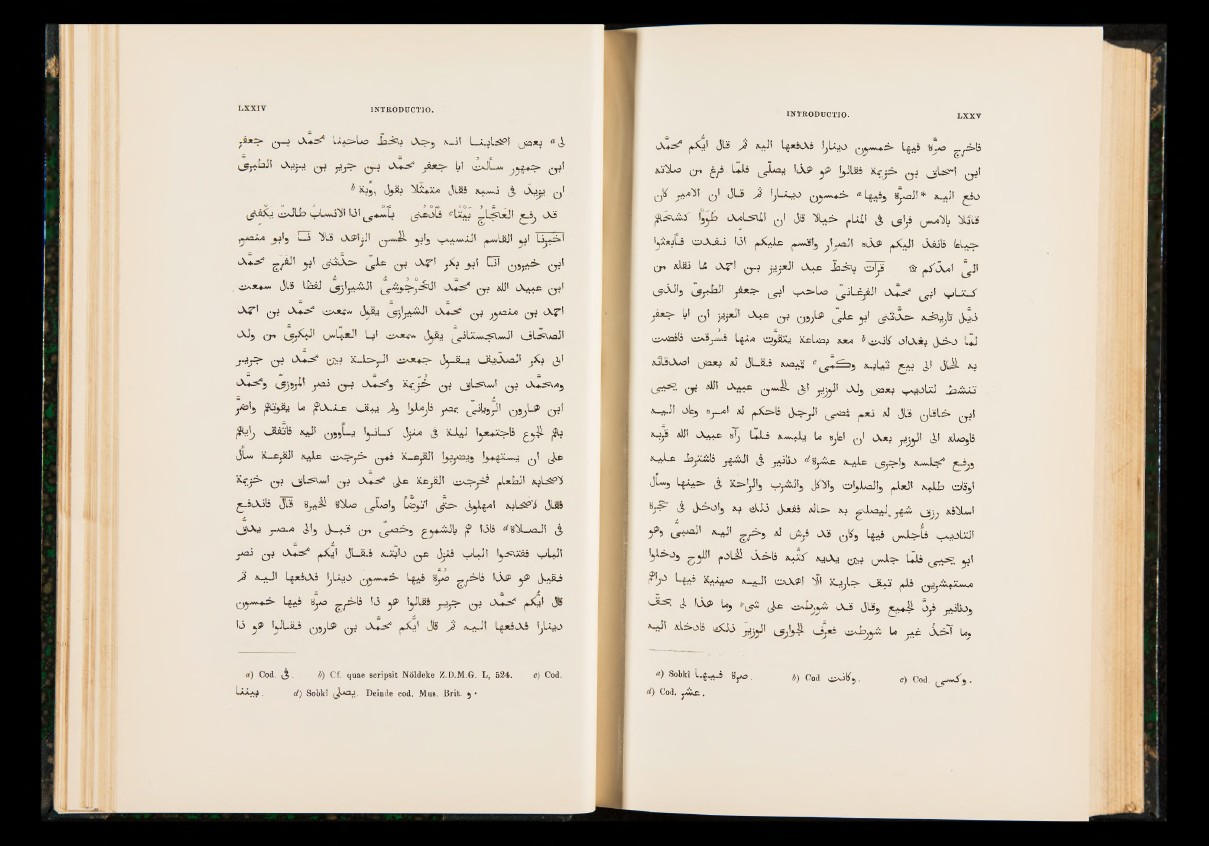 LXXIV INTRODUCTIO.
لى a بعض اصحابنا انه وجد بخط صاحبنا محمّد بن جعفر
ابن جمهور سألت ابا جعفر محمّد بن جرير بن يزيد الطبرىّ
ان يزيد فى نسبه فقال متمثلا بقول روبة b
قد رفع العجّاج بيتًا c فادعنى باسمى اذا الانساب طالت يكفنى
اخبرنا ابو القاسم النسيب وابو الحسن الزاهد قالا نا وابو منصور
ابن خيرون انا ابو بكر احمد بن علىّ حدّثنى ابو الفرج محمّد
ابن عبيد الله بن محمّد الخرجوشىّ الشيرازىّ لفظا قال سمعت
احمد بن منصور بن محمّد الشيرازىّ يقول سمعت محمّد بن احمد
الصحّاف السجستانىّ يقول سمعت ابا العبّاس البكرىّ من ولد
ابى بكر الصدّيق يقول جمعت الرحلة بين محمّد بن جرير
ومحمّد بن اسحاق بن خُزيمة ومحمّد بن نصر المروزىّ ومحمّد
ابن هارون الرويانىّ بمصر فارملوا ولم يبق عندهم ما يقوتهم واضرّ
بهم الجوع فاجتمعوا ليلة فى منزل كانوا يأوون اليه فاتّفق رايهم
على ان يستهموا ويضربوا القرعة فمن خرجت عليه القرعة سأل
لاصحابه الطعام فخرجت القرعة على محمّد بن اسحاق بن خزيمة
فقال لاصحابه امهلونى حتّى اتوضّأ واصلّى صلاة الخيرة قال فاندفع
فى الصلاة d فاذا هم بالشموع وخصىّ من قبل والى مصر يدقّ
الباب ففتحوا الباب فنزل عن دابّته فقال ايّكم محمّد بن نصر
فقيل هو هذا فاخرج صرّة فيها خمسون دينارا فدفعها اليه ثم
قال ايّكم محمّد بن جرير فقالوا هو ذا فاخرج صرّة فيها خمسون
دينارا فدفعها اليه ثم قال ايّكم محمّد بن هارون فقالوا هو ذا
a) Cod. فى. b) Cf. quae scripsit Nöldeke Z.D.M.G. L, 524. c) Cod.
d) Sobkî يصلى. Deinde cod. Mus. Brit. و.
INTRODUCTIO. LXXV
فاخرج صرّة فيها خمسون دينارا فدفعها اليه ثم قال ايّكم محمّد
ابن اسحاق بن خزيمة فقالوا هو هذا يصلّى فلمّا فرغ من صلاته
دفع اليه *الصرّة وفيها a خمسون دينارا ثم قال ان الامير كان
قائلا بالامس فراى فى المنام خيالا قال ان المحامد طووا كشحهم
جياعا فانفذ اليكم هذه الصرار واقسم عليكم اذا نفدت فابعثوا
الىّ امدّكم ۞ قرأت بخطّ عبد العزيز بن احمد ممّا نقله من
كتاب ابى محمّد الفرغانىّ صاحب ابى جعفر الطبرىّ والذى
ذيّل تاريخه حدّثنى ابو علىّ هارون بن عبد العزيز ان ابا جعفر
لمّا دخل بغداد وكانت b معه بضاعة يتقوّت منها فسرقت فافضت
به الحال الى بيع ثيابه وكمّى c قميصه فقال له بعض اصدقائه
تنشط لتاديب بعض ولد الوزير ابى الحسن عبيد الله بن يحيى
ابن خاقان قال له نعم فمضى الرجل فاحكم له امره وعاد اليه
فاوصله الى الوزير بعد ان اعاره ما يلبسه فلمّا رآه عبيد الله قرّبه
ورفع مجلسه واجرى عليه عشرة d دنانير فى الشهر فاشترط عليه
اوقات طلبه العلم والصلوات والاكل والشرب والراحة فى حينها وسأل
اسلافه رزق شهر ليصلح به حاله ففعل ذلك به وادخل فى حجرة
التأديب فأجلس فيها وكان قد فرش له وخرج اليه الصبىّ وهو
ابو يحيى فلمّا جلس بين يديه كتّبه فاخذ الخادم اللوح ودخلوا
مستبشرين فلم تبق جارية الّا اهدت اليه صينية فيها دراهم
ودنانير فردّ الجميع وقال قد شورطت على شىء وما هذا لى بحقّ
وما آخذ غير ما شورطت فعرّف الجوارى الوزير ذلك فادخله اليه
a) Sobkî صرة فيها. b) Cod وكانت. c) Cod. وكسى.
d) Cod. عشر.